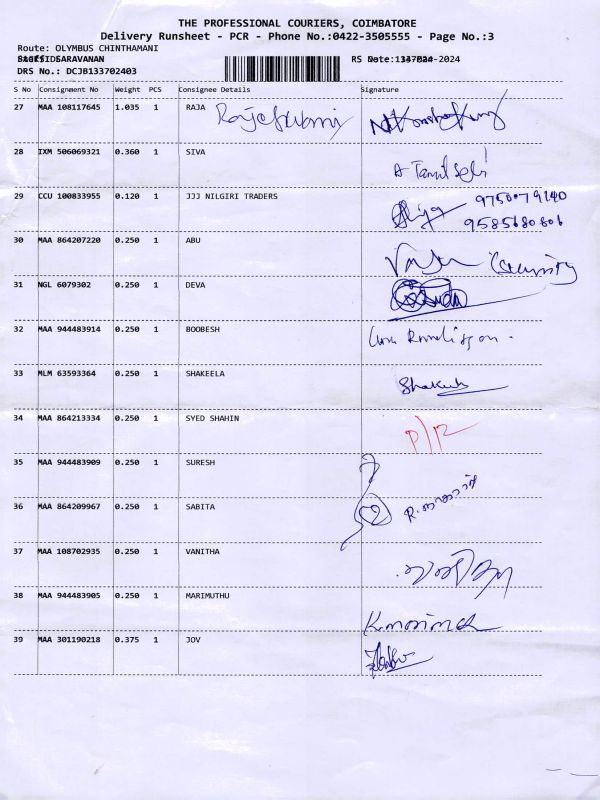 THE PROFESSIONAL COURIERS, COIMBATORE
Delivery Runsheet - PCR - Phone No.:0422-3505555 - Page No.:3
Route: OLYMBUS CHINTHAMANI
SARAVANAN
DRS No.: DCJB133702403
S No Consignment No Weight PCS Consignee Details Signature
27 MAA 108117645 1.035 1 RAJA
28 IXM 506069321 0.360 1 SIVA
29 CCU 100833955 0.120 1 JJJ NILGIRI TRADERS 9750079140
9585680806
30 MAA 864207220 0.250 1 ABU Security
31 NGL 6079302 0.250 1 DEVA
32 MAA 944483914 0.250 1 BOOBESH
33 MLM 63593364 0.250 1 SHAKEELA
34 MAA 864213334 0.250 1 SYED SHAHIN
35 MAA 944483909 0.250 1 SURESH
36 MAA 864209967 0.250 1 SABITA
37 MAA 108702935 0.250 1 VANITHA
38 MAA 944483905 0.250 1 MARIMUTHU
39 MAA 301190218 0.375 1 JOV